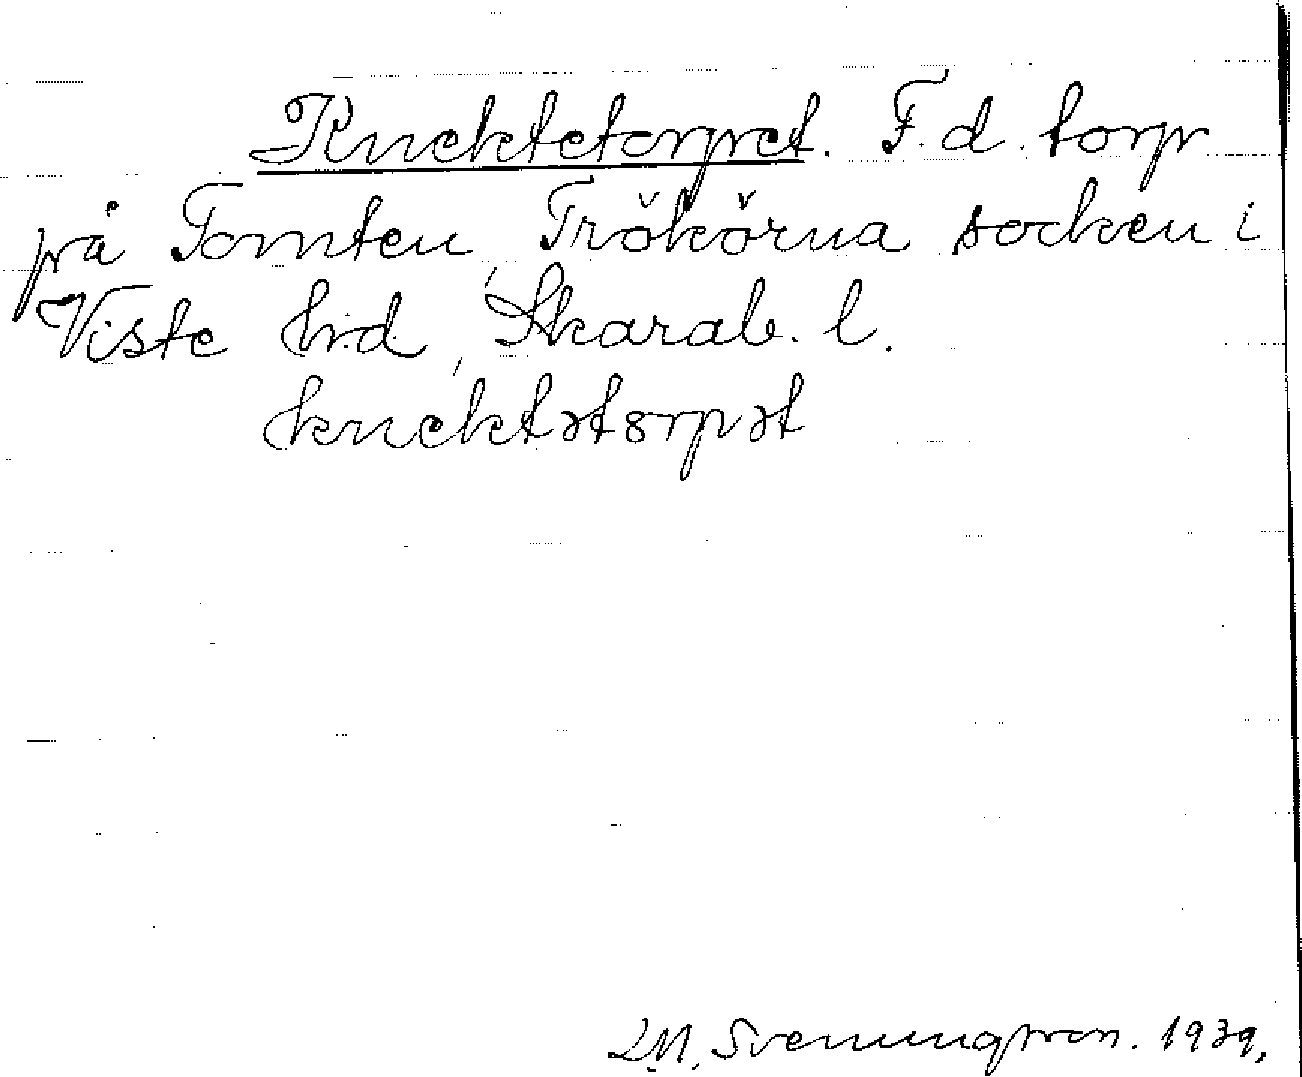 Knecktetorpet. F. d. torp
på Tomten, Trökörna socken i
Viste hrd, Skarab. l.
knecktətɛrpət
Svenningsson. 1939.